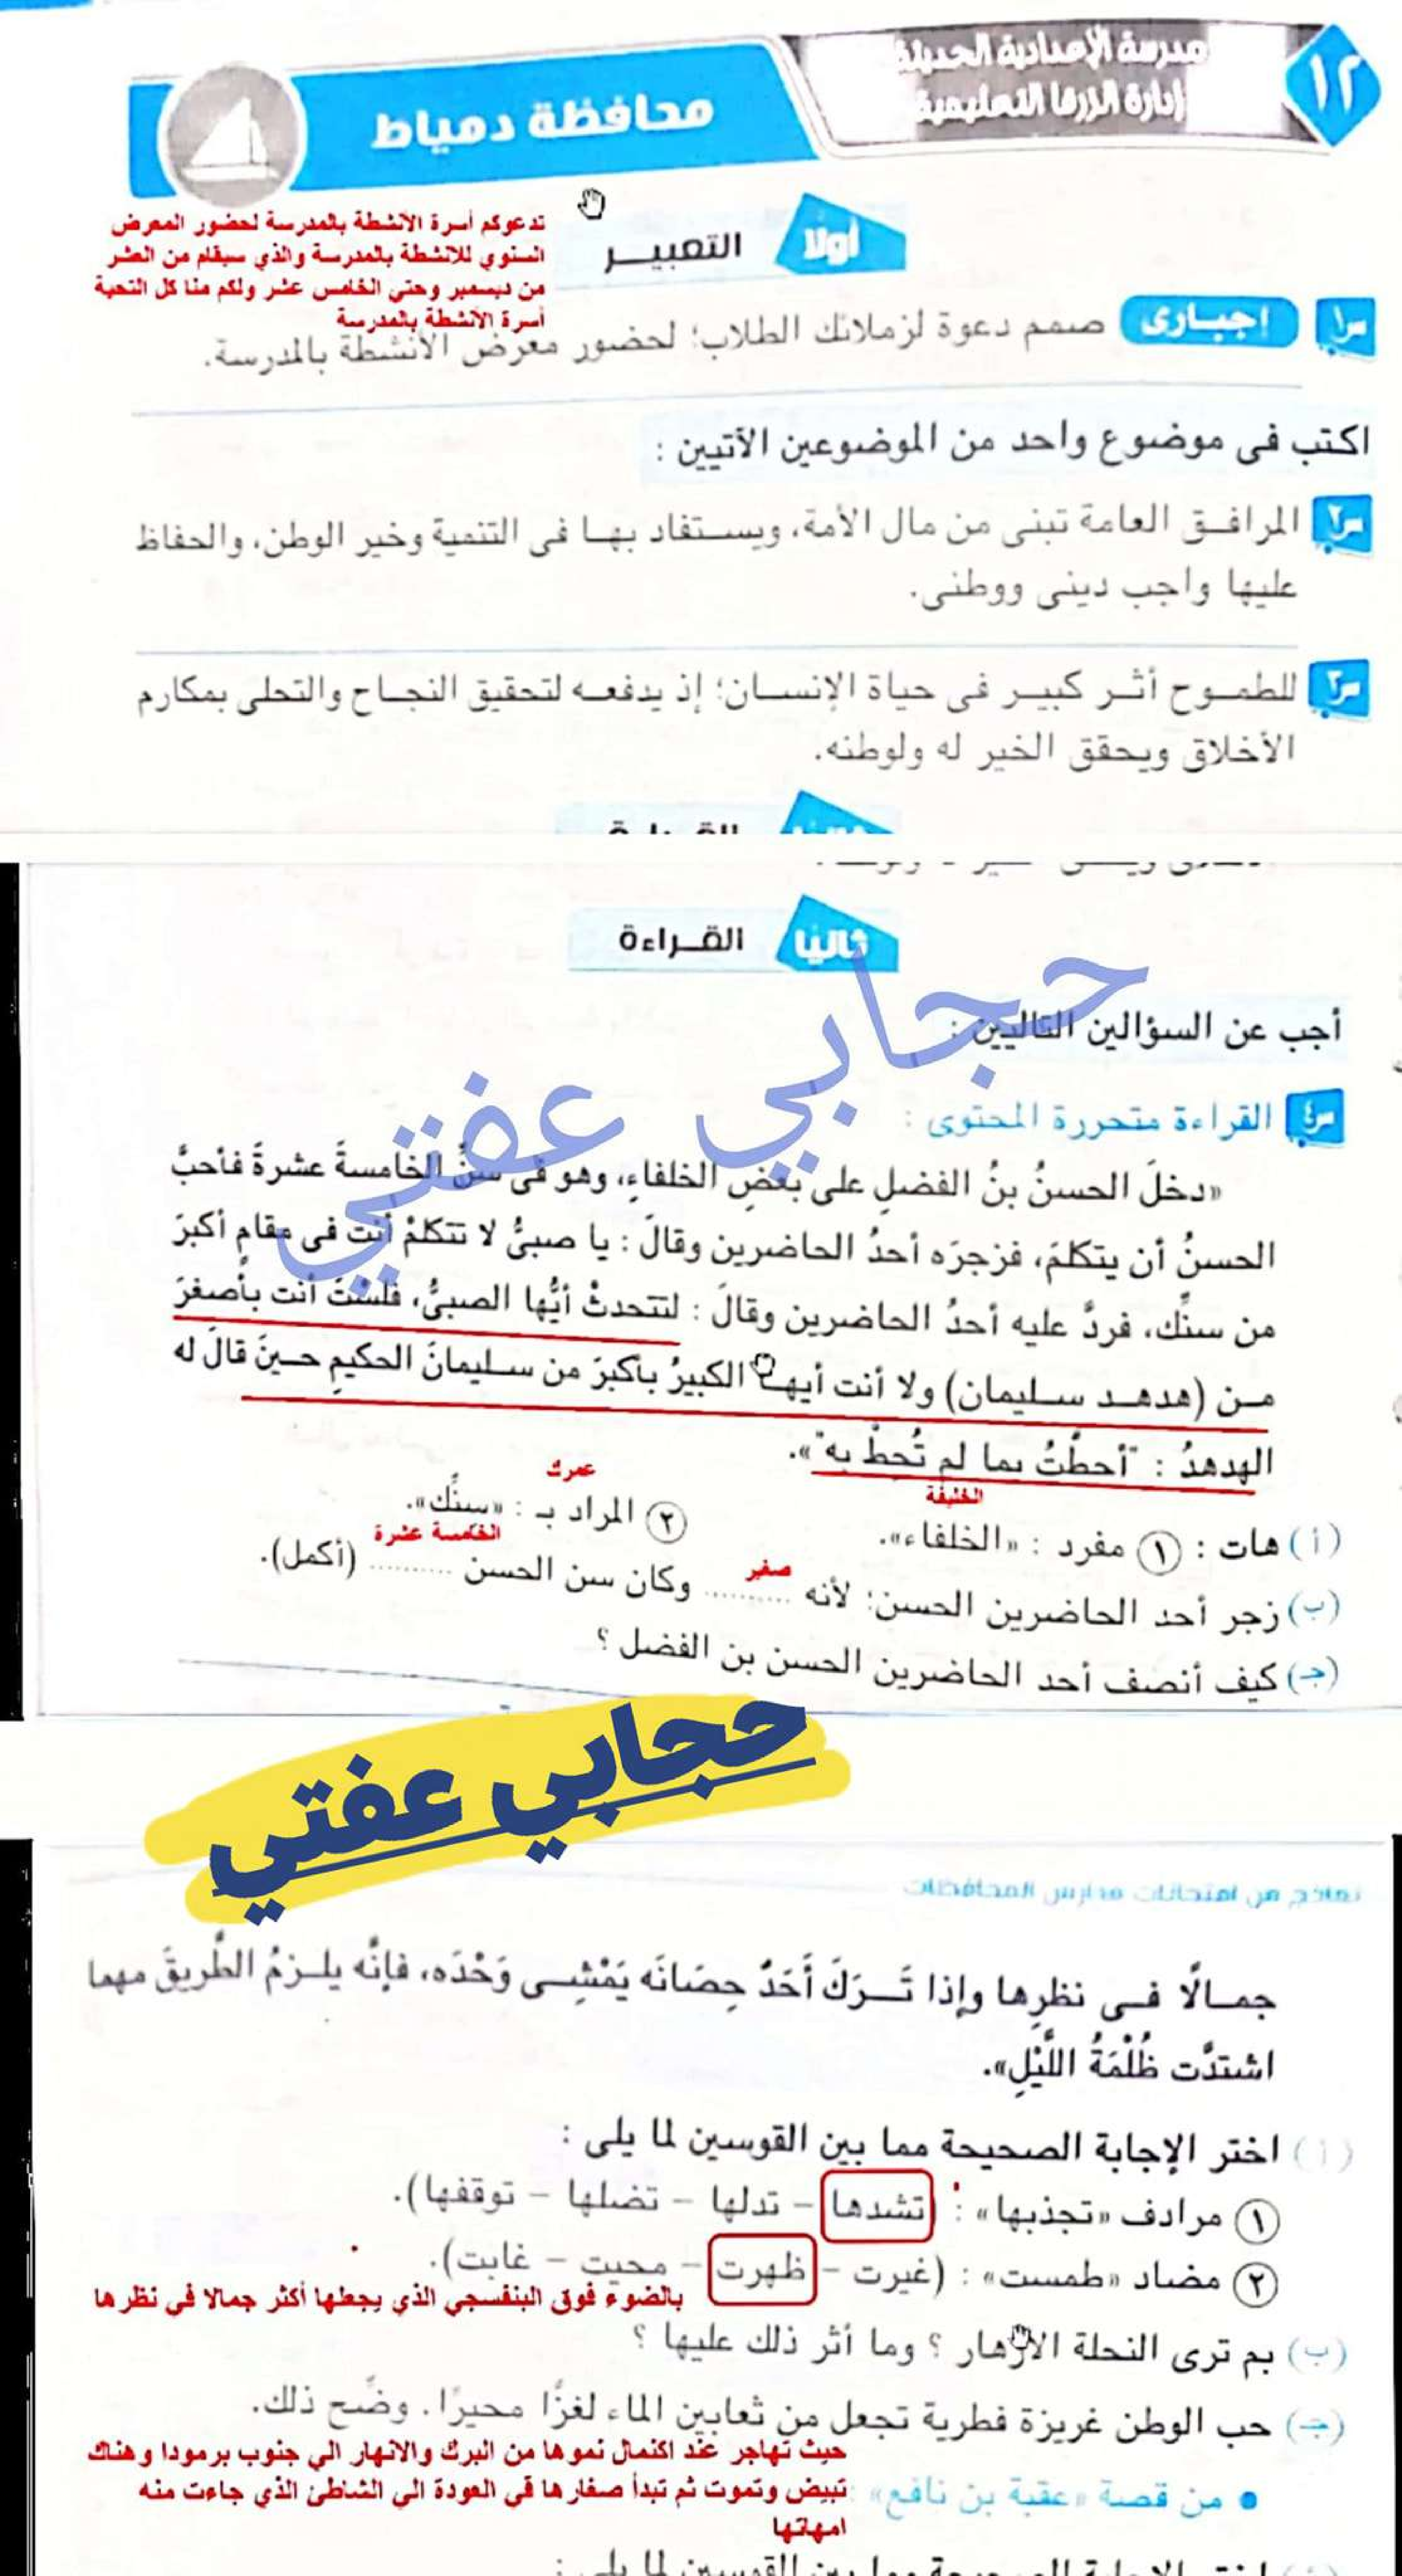 ١٢
مدرسة الإعدادية الحديثة
إدارة الزرقا التعليمية
محافظة دمياط
أولًا
التعبيـــر
تدعوكم أسرة الأنشطة بالمدرسة لحضور المعرض
السنوي للانشطة بالمدرسة والذي سيقام من العشر
من ديسمبر وحتي الخامس عشر ولكم منا كل التحية
أسرة الأنشطة بالمدرسة
س١ إجبارى صمم دعوة لزملائك الطلاب؛ لحضور معرض الأنشطة بالمدرسة.
اكتب فى موضوع واحد من الموضوعين الآتيين :
س٢ المرافـق العامة تبنى من مال الأمة، ويستفاد بهـا فى التنمية وخير الوطن، والحفاظ
عليها واجب دينى ووطنى.
س٣ للطمـوح أثـر كبيـر فى حياة الإنسـان؛ إذ يدفعـه لتحقيق النجـاح والتحلى بمكارم
الأخلاق ويحقق الخير له ولوطنه.
ثانيًا
القـراءة
حجابي عفتي
أجب عن السؤالين التاليين :
س٤ القراءة متحررة المحتوى :
«دخلَ الحسنُ بنُ الفضلِ على بعضِ الخلفاءِ، وهو فى سنِّ الخامسةَ عشرةَ فأحبَّ
الحسنُ أن يتكلمَ، فزجرَه أحدُ الحاضرين وقالَ : يا صبىُّ لا تتكلمْ أنت فى مقامِ أكبرَ
من سنِّك، فردَّ عليه أحدُ الحاضرين وقالَ : لتتحدثْ أيُّها الصبىُّ، فلسْتَ أنت بأصغرَ
مـن (هدهـد سـليمان) ولا أنت أيهـا الكبيرُ بأكبرَ من سـليمانَ الحكيمِ حـينَ قالَ له
الهدهدُ : "أحطْتُ بما لم تُحطْ به"».
الخليفة
عمرك
(أ) هات : ١ مفرد : «الخلفاء». ٢ المراد بـ : «سنِّك».
صغير
الخامسة عشرة
(ب) زجر أحد الحاضرين الحسن؛ لأنه .......... وكان سن الحسن .......... (أكمل).
(جـ) كيف أنصف أحد الحاضرين الحسن بن الفضل ؟
حجابي عفتي
نماذج من امتحانات مدارس المحافظات
جمـالًا فـى نظرِها وإذا تَـرَكَ أَحَدٌ حِصَانَه يَمْشِـى وَحْدَه، فإنَّه يلـزمُ الطَّريقَ مهما
اشتدَّت ظُلْمَةُ اللَّيْلِ».
(أ) اختر الإجابة الصحيحة مما بين القوسين لما يلى :
١ مرادف «تجذبها» : (تشدها – تدلها – تضلها – توقفها).
٢ مضاد «طمست» : (غيرت – ظهرت – محيت – غابت).
بالضوء فوق البنفسجي الذي يجعلها أكثر جمالا في نظرها
(ب) بم ترى النحلة الأزهار ؟ وما أثر ذلك عليها ؟
(جـ) حب الوطن غريزة فطرية تجعل من ثعابين الماء لغزًا محيرًا. وضِّح ذلك.
حيث تهاجر عند اكتمال نموها من البرك والانهار الي جنوب برمودا وهناك
تبيض وتموت ثم تبدأ صغارها في العودة الي الشاطئ الذي جاءت منه
امهاتها
• من قصة «عقبة بن نافع» :